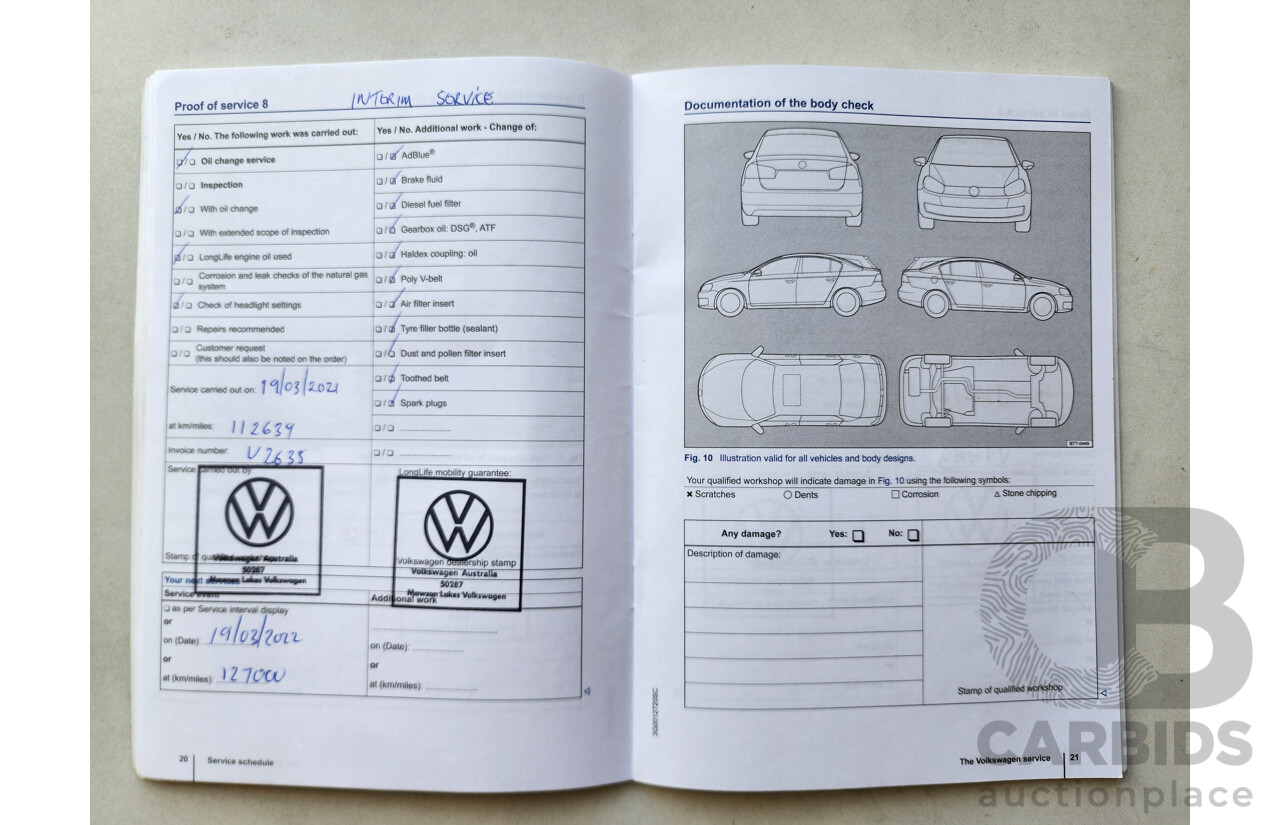 Proof of service 8
INTERIM SERVICE
Yes / No. The following work was carried out:
Oil change service
Inspection
With oil change
With extended scope of inspection
LongLife engine oil used
Corrosion and leak checks of the natural gas
system
Check of headlight settings
Repairs recommended
Customer request
(this should also be noted on the order)
Service carried out on: 19/03/2021
at km/miles: 112639
Invoice number: V2635
Service carried out by:
Volkswagen Australia
50287
Mawson Lakes Volkswagen
Stamp of qualified workshop
Yes / No. Additional work - Change of:
AdBlue®
Brake fluid
Diesel fuel filter
Gearbox oil: DSG®, ATF
Haldex coupling: oil
Poly V-belt
Air filter insert
Tyre filler bottle (sealant)
Dust and pollen filter insert
Toothed belt
Spark plugs
LongLife mobility guarantee:
Volkswagen dealership stamp
Volkswagen Australia
50287
Mawson Lakes Volkswagen
Your next services
Service event
as per Service interval display
or
on (Date): 19/03/2022
or
at (km/miles): 127000
Additional work
on (Date):
or
at (km/miles):
20 Service schedule
Documentation of the body check
B7T-0449
Fig. 10 Illustration valid for all vehicles and body designs.
Your qualified workshop will indicate damage in Fig. 10 using the following symbols:
× Scratches ○ Dents □ Corrosion △ Stone chipping
Any damage? Yes: No:
Description of damage:
Stamp of qualified workshop
3G0012720SC
The Volkswagen service 21
CB
CARBIDS
auctionplace